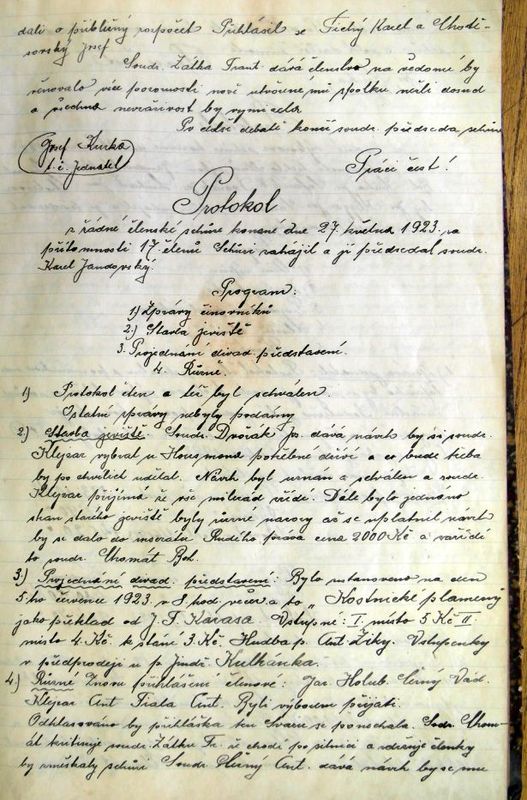 dali o přibližný rozpočet Přihlásil se Tichý Karel a
Josef
Soudr. Zátka Frant. dává členstvu na vědomí by
věnovalo více pozornosti nově utvořenému spolku nežli dosud
a všechna nevraživost by vymizela.
Po delší debatě končí soudr. předseda schůzi
Josef Kurka
t.č. jednatel
Práci čest!
Protokol
z řádné členské schůze konané dne 27 května 1923 za
přítomnosti 17. členů Schůzi zahájil a jí předsedal soudr.
Karel Jandovský.
Program:
1) Zprávy činovníků
2.) Stavba jeviště
3. Projednání divad. představení.
4. Různé.
1) Protokol čten a též byl schválen.
Ostatní zprávy nebyly podány
2.) Stavba jeviště. Soudr. Dvořák Jp. dává návrh by si soudr.
Klepsar vybral u potřebné dříví a co bude třeba
by po chvílích udělal. Návrh byl uznán a schválen a soudr.
Klepsar přijímá že vše milerád zřídí. Dále bylo jednáno
starého jeviště byly různé názory až se uplatnil návrh
by se dalo do inserátu Rudého práva cena 2000 Kč a zařídí
to soudr. Chomát Boh.
3.) Projednání divad. představení: Bylo ustanoveno na den
5.ho července 1923 v 8 hod. večer a to „Kostnické plameny
jako příklad od J. F. Karasa. Vstupné: I. místo 5 Kč II.
místo 4. Kč k stání 3. Kč. Hudba p. Ant. Žiky. Vstupenky
v předprodeji u p. Jindř. Kulhánka.
4.) Různé Znovu přihlášení členové: Jar. Holub. Černý Vád.
Klepsar Ant Fiala Ant. Byli výborem přijati.
Odhlasováno by přihláška ku Svazu se ponechala. Sodr. Chom-
át kritisuje soudr. Zátku Fr. že chodí po silnici a zdržuje členky
by zmeškaly schůzi Soudr. Černý Ant. dává návrh by se mu